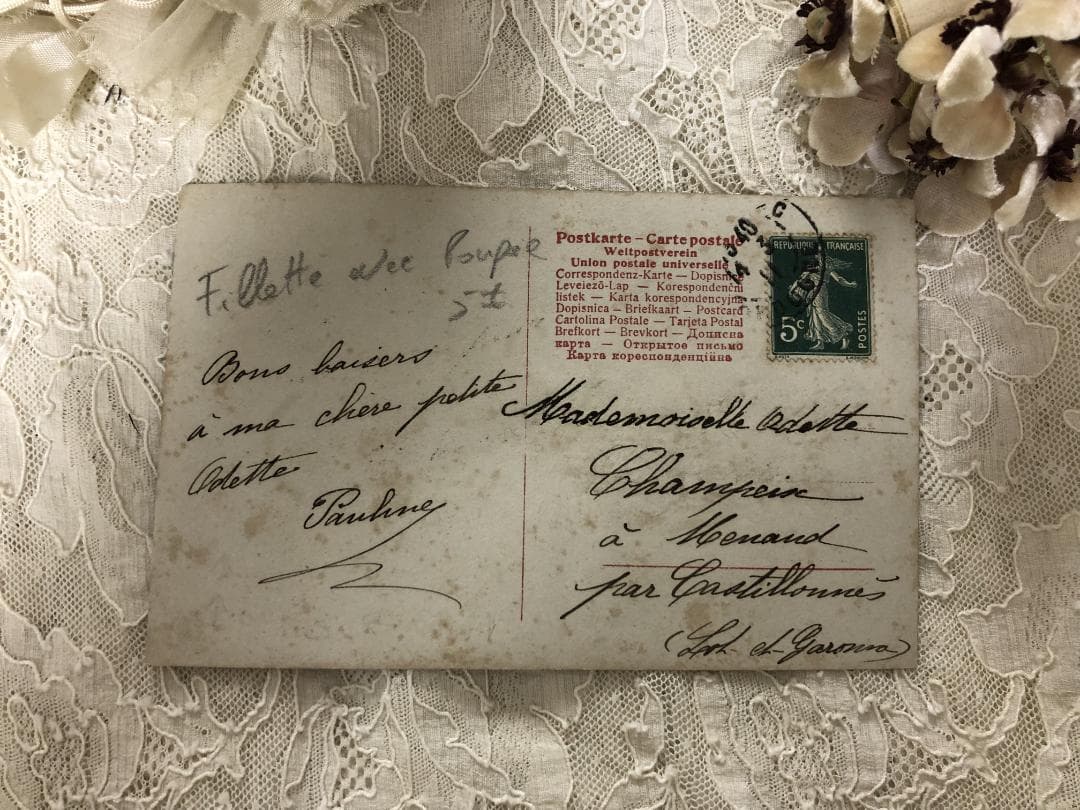 Fillette avec Poupée
5t
Bons baisers
à ma chère petite
Odette
Pauline
Postkarte – Carte postale
Weltpostverein
Union postale universelle
Correspondenz-Karte — Dopisnice
Levelező-Lap — Korespondenční
listek — Karta korespondencyjna
Dopisnica — Briefkaart — Postcard
Cartolina Postale — Tarjeta Postal
Brefkort — Brevkort — Дописна
карта — Открытое письмо
Карта кореспонденційна
REPUBLIQUE FRANÇAISE
5c
POSTES
Mademoiselle Odette
Champeix
à Menaud
par Castillonnès
(Lot-et-Garonne)